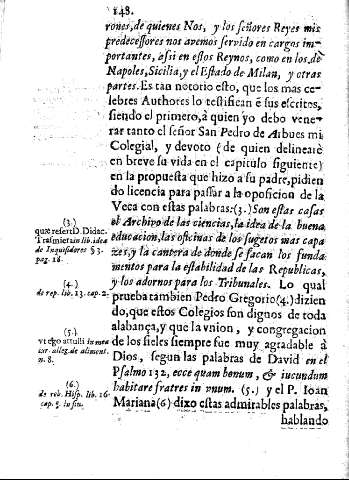 148.
rones, de quienes Nos, y los señores Reyes mis
predecessores nos avemos servido en cargos im-
portantes, assi en estos Reynos, como en los de
Napoles, Sicilia, y el Estado de Milan, y otras
partes. Es tan notorio esto, que los mas ce-
lebres Authores lo testifican ẽ sus escritos,
siendo el primero, à quien yo debo vene-
rar tanto el señor San Pedro de Arbues mi
Colegial, y devoto (de quien delinearè
en breve su vida en el capitulo siguiente)
en la propuesta que hizo a su padre, pidien
do licencia para passar a la oposicion de la
Veca con estas palabras: (3.) Son estas casas
el Archivo de las ciencias, la idea de la buena
educacion, las oficinas de los sugetos mas capa
zes, y la cantera de donde se sacan los funda-
mentos para la estabilidad de las Republicas,
y los adornos para los Tribunales. Lo qual
prueba tambien Pedro Gregorio (4.) dizien
do, que estos Colegios son dignos de toda
alabança, y que la vnion, y congregacion
de los fieles siempre fue muy agradable à
Dios, segun las palabras de David en el
Psalmo 132, ecce quam bonum, & iucundum
habitare fratres in vnum. (5.) y el P. Ioan
Mariana (6) dixo estas admirables palabras,
hablando
(3.)
quæ refert D. Didac.
Trasmiera in lib. idea
de Inquisidores § 3.
pag. 16.
(4.)
de rep. lib. 13. cap. 2.
(5.)
vt ego attuli in mea
iur. alleg. de aliment.
n. 8.
(6.)
de reb. Hisp. lib. 16.
cap. 9. in fin.